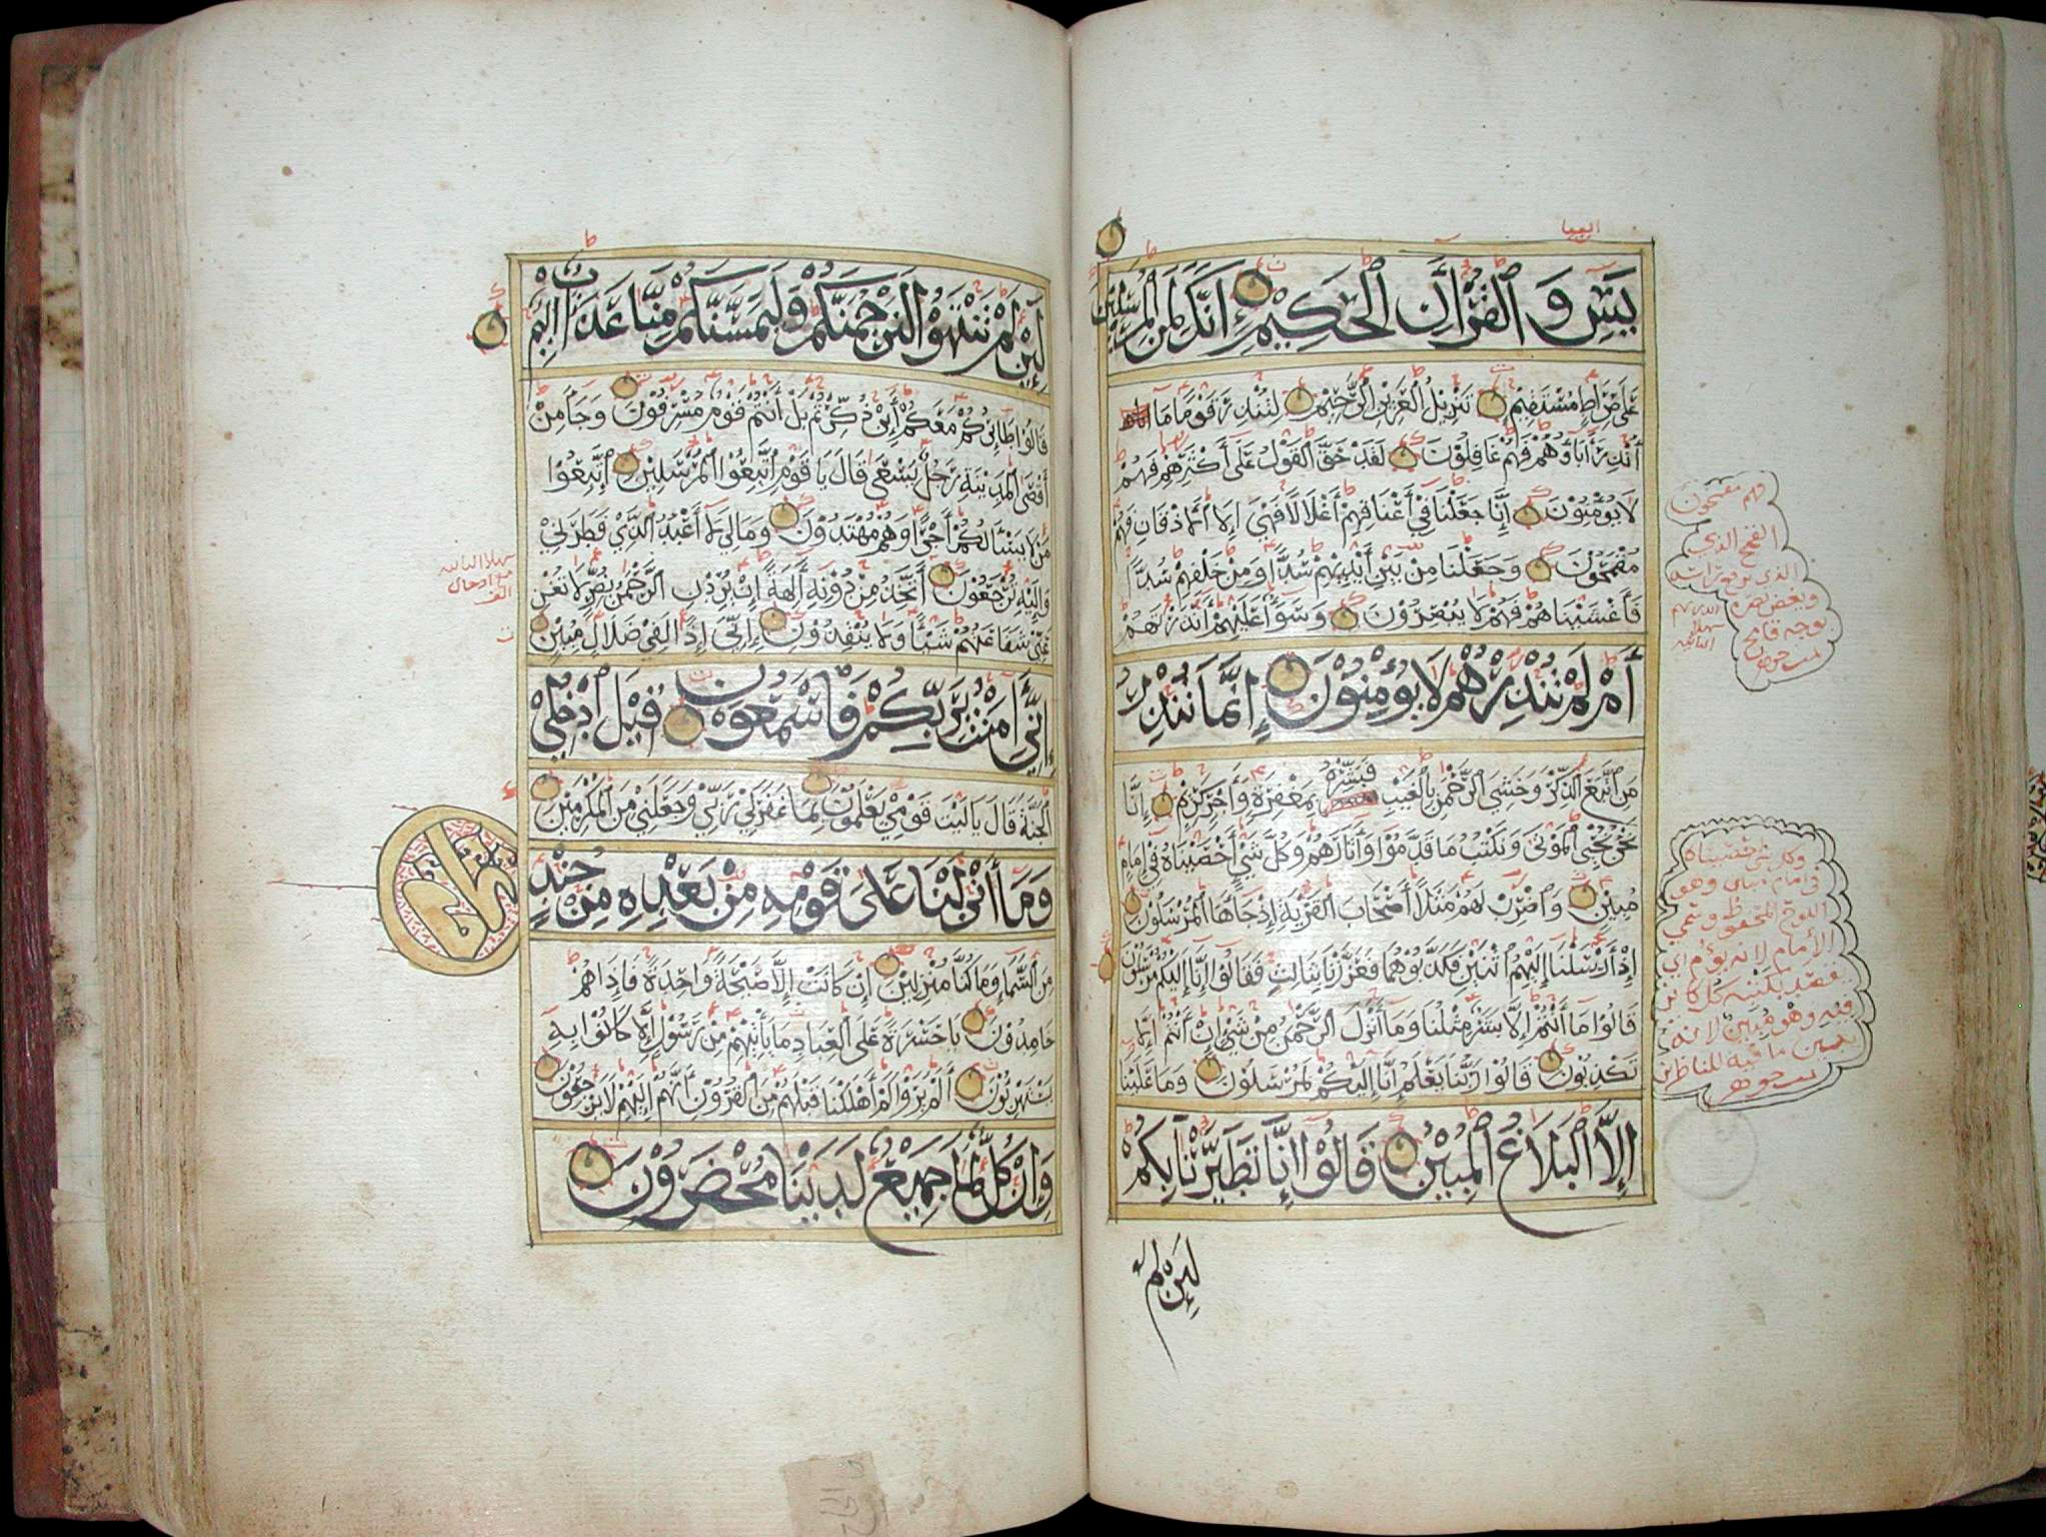 يس والقرآن الحكيم إنك لمن المرسلين
على صراط مستقيم تنزيل العزيز الرحيم لتنذر قوما ما
أنذر آباؤهم فهم غافلون لقد حق القول على أكثرهم فهم
لا يؤمنون إنا جعلنا في أعناقهم أغلالا فهي إلى الأذقان فهم
مقمحون وجعلنا من بين أيديهم سدا ومن خلفهم سدا
فأغشيناهم فهم لا يبصرون وسواء عليهم أأنذرتهم
أم لم تنذرهم لا يؤمنون إنما تنذر
من اتبع الذكر وخشي الرحمن بالغيب فبشره بمغفرة وأجر كريم إنا
نحن نحيي الموتى ونكتب ما قدموا وآثارهم وكل شيء أحصيناه في إمام
مبين واضرب لهم مثلا أصحاب القرية إذ جاءها المرسلون
إذ أرسلنا إليهم اثنين فكذبوهما فعززنا بثالث فقالوا إنا إليكم مرسلون
قالوا ما أنتم إلا بشر مثلنا وما أنزل الرحمن من شيء إن أنتم إلا
تكذبون قالوا ربنا يعلم إنا إليكم لمرسلون وما علينا
إلا البلاغ المبين قالوا إنا تطيرنا بكم
لئن لم
وهم مقمحون
المقمح الذي
وكل شيء أحصيناه
في إمام مبين وهو
اللوح المحفوظ وسمي
الإمام لأنه يؤم أي
يقصد بكتبه كل كائن
فيه وهو مبين لأنه
يبين ما فيه للناظرين
لئن لم تنتهوا لنرجمنكم وليمسنكم منا عذاب أليم
قالوا طائركم معكم أئن ذكرتم بل أنتم قوم مسرفون وجاء من
أقصى المدينة رجل يسعى قال يا قوم اتبعوا المرسلين اتبعوا
من لا يسألكم أجرا وهم مهتدون وما لي لا أعبد الذي فطرني
وإليه ترجعون أأتخذ من دونه آلهة إن يردن الرحمن بضر لا تغن
عني شفاعتهم شيئا ولا ينقذون إني إذا لفي ضلال مبين
إني آمنت بربكم فاسمعون قيل ادخل
الجنة قال يا ليت قومي يعلمون بما غفر لي ربي وجعلني من المكرمين
وما أنزلنا على قومه من بعده من جند
من السماء وما كنا منزلين إن كانت إلا صيحة واحدة فإذا هم
خامدون يا حسرة على العباد ما يأتيهم من رسول إلا كانوا به
يستهزئون ألم يروا كم أهلكنا قبلهم من القرون أنهم إليهم لا يرجعون
وإن كل لما جميع لدينا محضرون